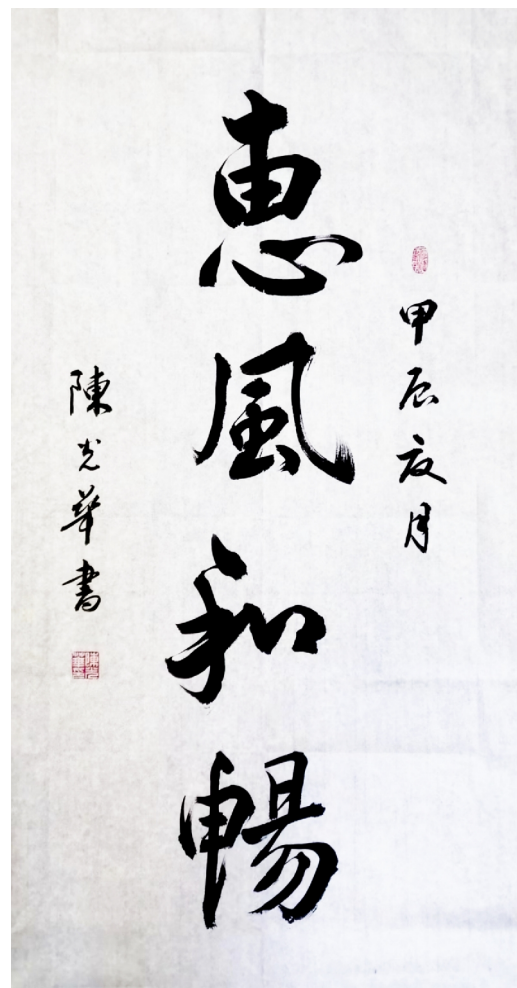 甲辰亥月
惠風和暢
陳光華書